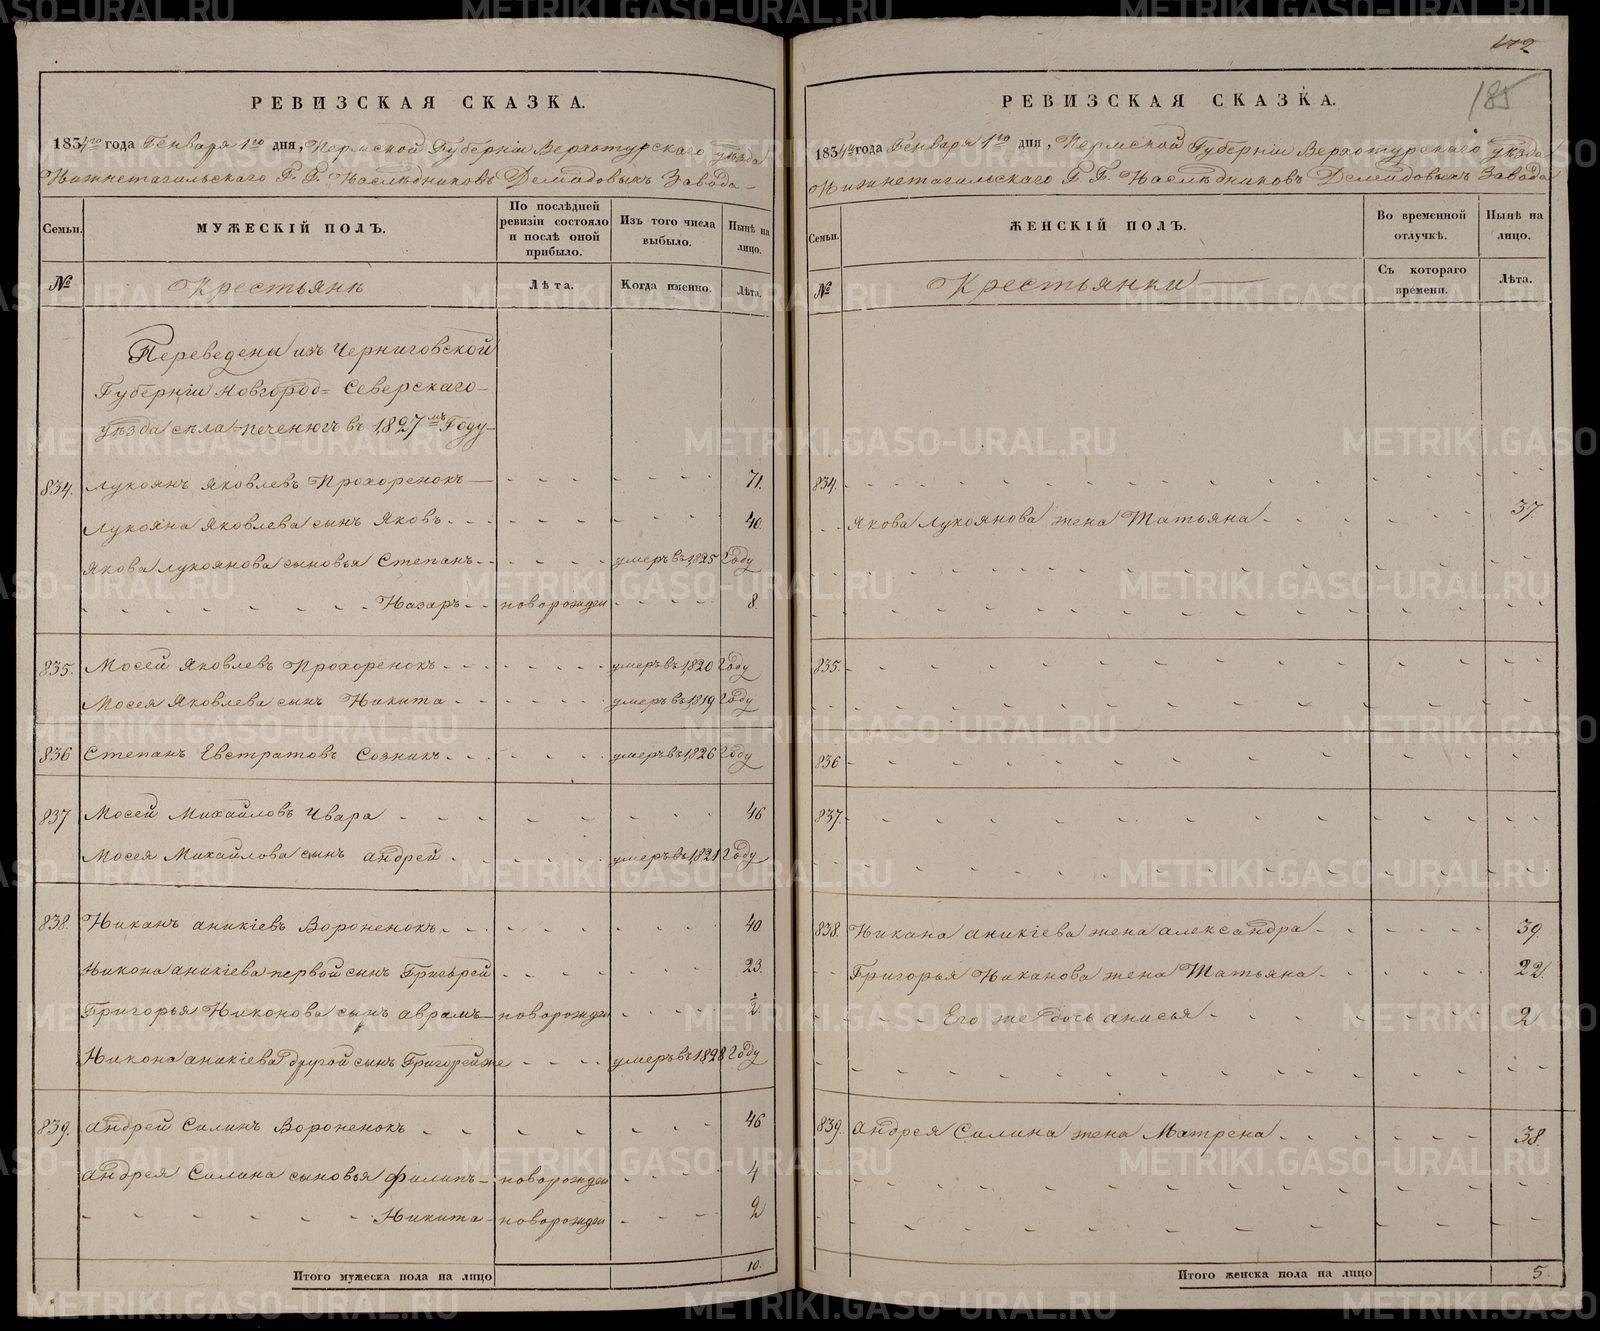 172
185
РЕВИЗСКАЯ СКАЗКА.
1834го года Генваря 1го дня, Пермской Губерніи Верхотурскаго уѣзда
Нижнетагильскаго Г. Г. Наслѣдниковъ Демидовыхъ Завода
Семьи.
МУЖЕСКІЙ ПОЛЪ.
По послѣдней ревизіи состояло и послѣ оной прибыло.
Изъ того числа выбыло.
Нынѣ на лицо.
№
Крестьянѣ
Лѣта.
Когда именно.
Лѣта.
Переведены изъ Черниговской
Губерніи Новгород= Северскаго
уѣзда села Печенюгъ въ 1827мъ Году
834. Лукоянъ Яковлевъ Прохоренокъ 71.
Лукояна Яковлева сынъ Яковъ 40.
Якова Лукоянова сыновья Степанъ умеръ въ 1825 Году
Назаръ новорожден 8.
835. Мосей Яковлевъ Прохоренокъ умеръ въ 1820 Году
Мосея Яковлева сынъ Никита умеръ въ 1819 Году
836 Степанъ Евстратовъ Созникъ умеръ въ 1826 Году
837 Мосей Михайловъ Чвара 46
Мосея Михайлова сынъ Андрей умеръ въ 1821 Году
838. Никанъ Аникіевъ Вороненокъ 40
Никона Аникіева первой сынъ Григорей 23.
Григорья Никонова сынъ Аврамъ новорожден 1/2.
Никона Аникіева другой сынъ Григорей же умеръ въ 1828 Году
839. Андрей Силинъ Вороненокъ 46
Андрея Силина сыновья Филипъ новорожден 4
Никита новорожден 2
Итого мужеска пола на лицо 10.
РЕВИЗСКАЯ СКАЗКА.
1834го года Генваря 1го дня, Пермской Губерніи Верхотурскаго уѣзда
Нижнетагильскаго Г. Г. Наслѣдниковъ Демидовыхъ Завода
Семьи.
ЖЕНСКІЙ ПОЛЪ.
Во временной отлучкѣ.
Нынѣ на лицо.
№
Крестьянки
Съ котораго времени.
Лѣта.
834.
Якова Лукоянова жена Татьяна 37.
835.
836
837.
838. Никана Аникіева жена Александра 39.
Григорья Никанова жена Татьяна 22.
Его же дочь Анисья 2
839. Андрея Силина жена Матрена 38
Итого женска пола на лицо 5
METRIKI.GASO-URAL.RU